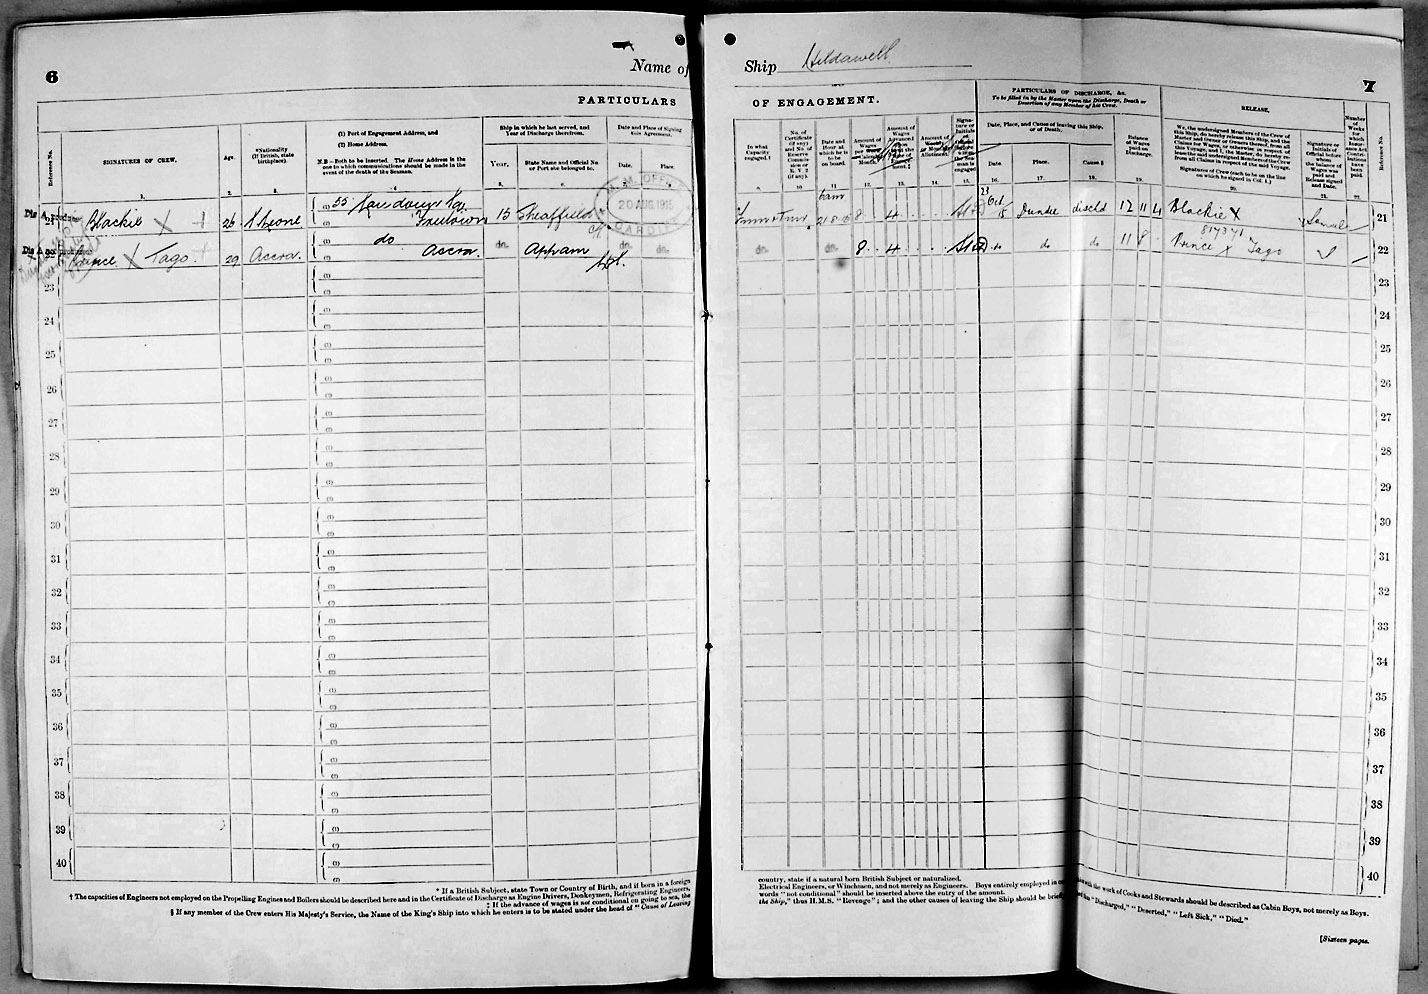 6
Name of
Ship Hildawell
7
PARTICULARS
OF ENGAGEMENT.
PARTICULARS OF DISCHARGE, &c.
To be filled in by the Master upon the Discharge, Death or
Desertion of any Member of his Crew.
RELEASE.
Reference No.
SIGNATURES OF CREW.
Age.
*Nationality
(If British, state
birthplace).
(1) Port of Engagement Address, and
(2) Home Address.
N.B—Both to be inserted. The Home Address is the
one to which communications should be made in the
event of the death of the Seaman.
Ship in which he last served, and
Year of Discharge therefrom.
Year.
State Name and Official No.
or Port she belonged to.
Date and Place of Signing
this Agreement.
Date.
Place.
In what
Capacity
engaged.†
No. of
Certificate
(if any)
and No. of
Reserve
Commis-
sion or
R.V.2
(if any).
Date and
Hour at
which he is
to be
on board.
Amount of
Wages
per
Calendar
Month.
Amount of
Wages
Advanced
Amount of
Allotment.
Signa-
ture or
Initials
Date, Place, and Cause of leaving this Ship,
or of Death.
Date.
Place.
Cause §
Balance
of Wages
paid on
Discharge.
We, the undersigned Members of the Crew of
this Ship, do hereby release this Ship, and the
Master and Owner or Owners thereof, from all
Claims for Wages, or otherwise in respect of
this Voyage; and I, the Master, do hereby re-
lease the undersigned Members of the Crew
from all Claims in respect of the said Voyage.
Signatures of Crew (each to be on the line
on which he signed in Col. 1.)
Signature or
Initials of
Official before
whom
the balance of
Wages was
paid and
Release signed
and Date.
Number
of
Weeks
for
which
Insur-
ance Act
Contri-
butions
have
been
paid.
Reference No.
1. 2. 3. 4 5. 6. 9. 10 11. 12. 13. 14. 15. 16. 17. 18. 19. 20. 21. 22.
M. M. OFFICE
20 AUG. 1915
CARDIFF
Dis A produced
21 Blackie X 26 S Leone 55 Freetown 15 Sheaffield 6 am 21.8.15 8 4 23 Oct 15 Dundee disch'd 12 11 4 Blackie X 21
22 Prince X Tago 29 Accra. do Accra. do. Appam do. do. do. do. 8 4 do do do 11 8 Prince X Tago 817371 22
23 23
24 24
25 25
26 26
27 27
28 28
29 29
30 30
31 31
32 32
33 33
34 34
35 35
36 36
37 37
38 38
39 39
40 40
* If a British Subject, state Town or Country of Birth, and if born in a foreign
country, state if a natural born British Subject or naturalized.
† The capacities of Engineers not employed on the Propelling Engines and Boilers should be described here and in the Certificate of Discharge as Engine Drivers, Donkeymen, Refrigerating Engineers,
Electrical Engineers, or Winchmen, and not merely as Engineers. Boys entirely employed in con with the work of Cooks and Stewards should be described as Cabin Boys, not merely as Boys.
‡ If the advance of wages is not conditional on going to sea, the
words "not conditional" should be inserted above the entry of the amount.
§ If any member of the Crew enters His Majesty's Service, the Name of the King's Ship into which he enters is to be stated under the head of "Cause of Leaving
the Ship," thus H.M.S. "Revenge"; and the other causes of leaving the Ship should be brief "Discharged," "Deserted," "Left Sick," "Died."
[Sixteen pages.